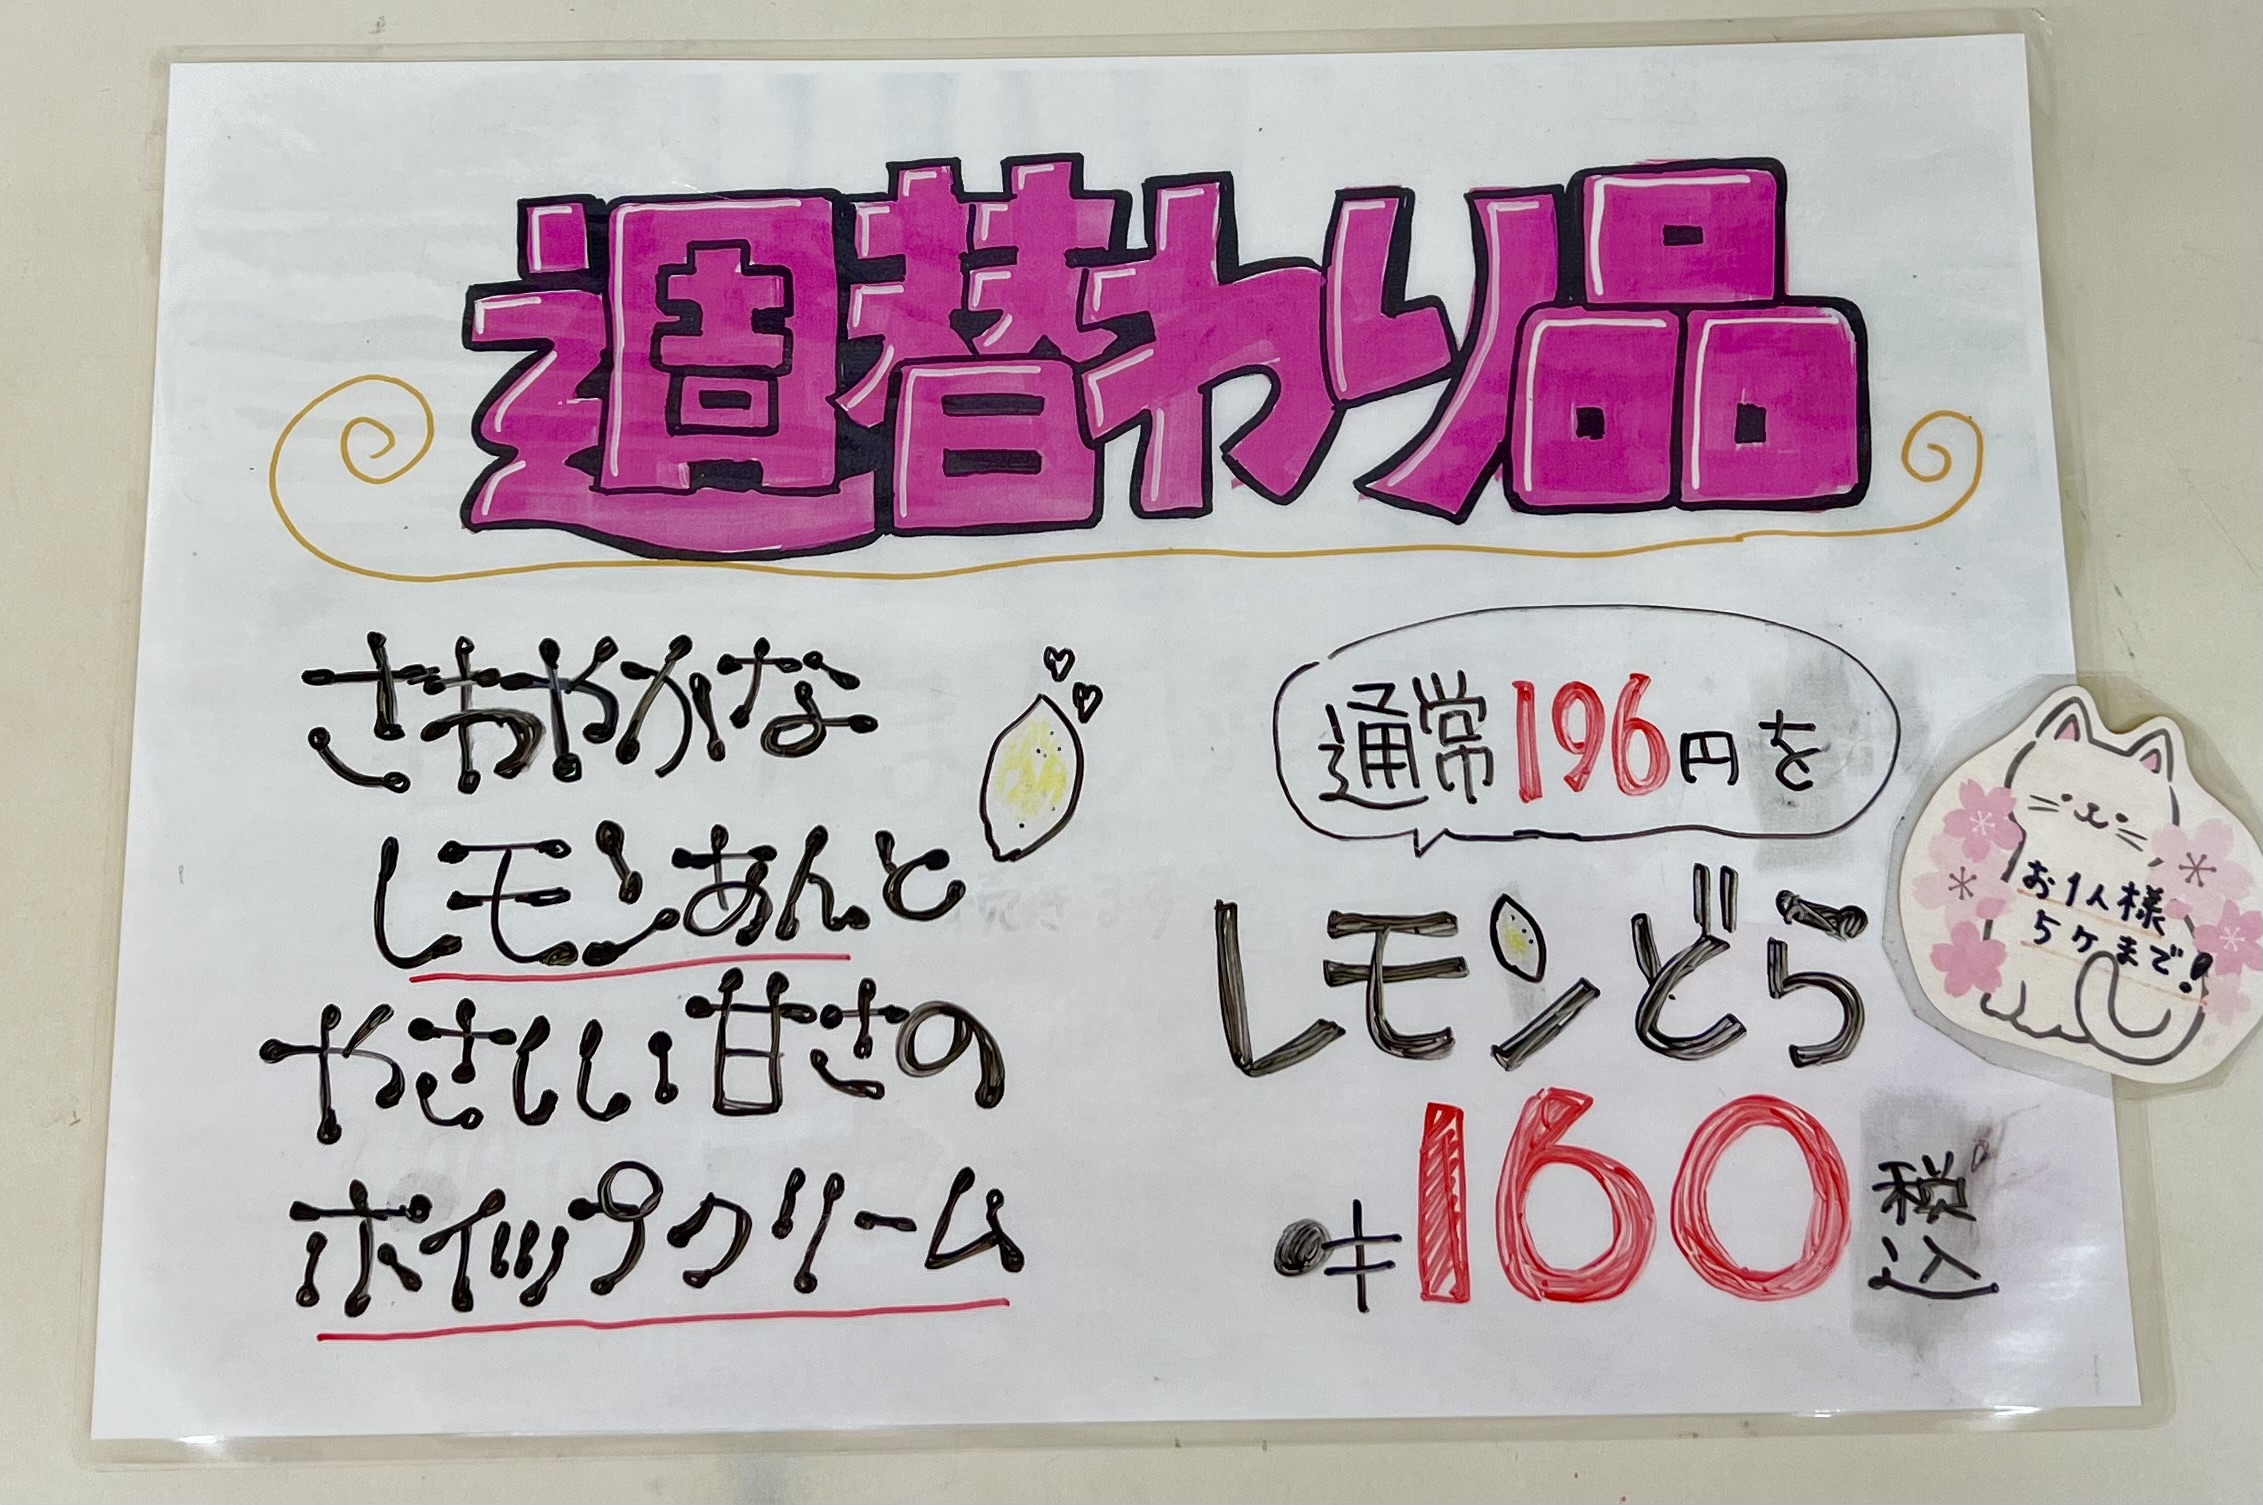 週替わり品
さわやかな
レモンあんと
やさしい甘さの
ホイップクリーム
通常196円を
レモンどら
160
税込
お1人様
5ヶまで!